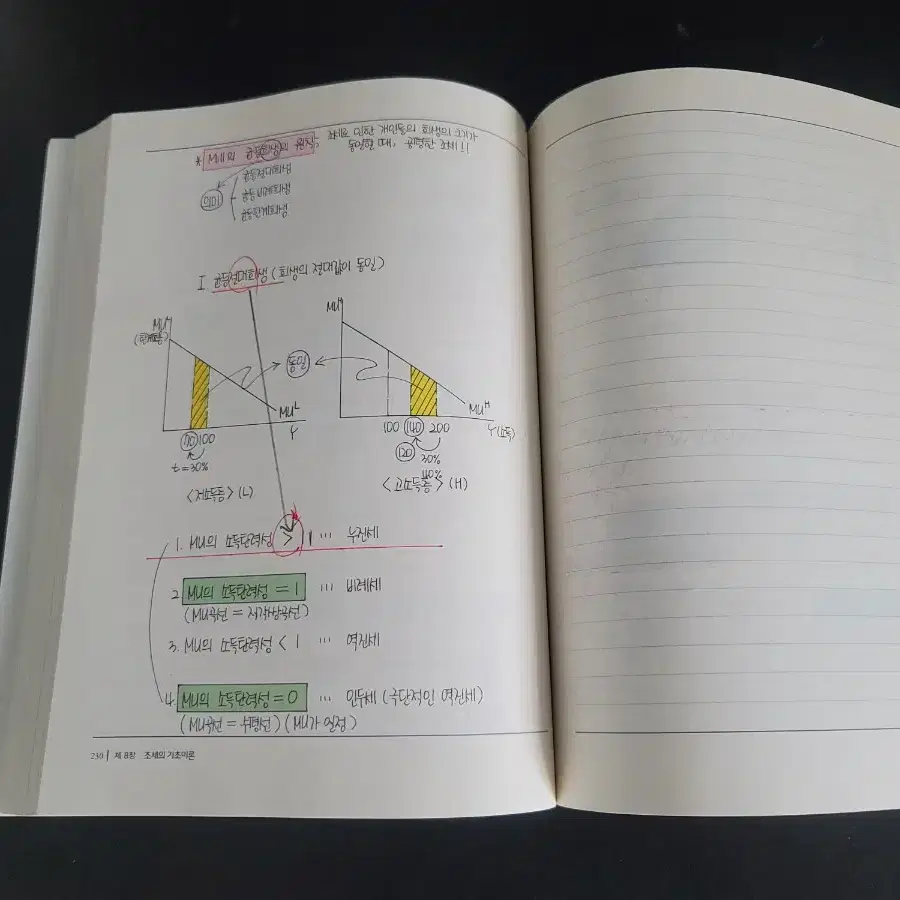 * Mill의 균등희생의 원칙; 조세로 인한 개인들의 희생의 크기가
동일할 때, 공평한 조세!!
의미
균등절대희생
균등비례희생
균등한계희생
I. 균등절대희생 (희생의 절대값이 동일)
MU
(한계효용)
MU^L
Y
70 100
t = 30%
<저소득층> (L)
동일
MU
MU^H
Y(소득)
100 140 200
120 30%
40%
<고소득층> (H)
1. MU의 소득탄력성 > 1 ... 누진세
2. MU의 소득탄력성 = 1 ... 비례세
(MU곡선 = 직각쌍곡선)
3. MU의 소득탄력성 < 1 ... 역진세
4. MU의 소득탄력성 = 0 ... 인두세 (극단적인 역진세)
(MU곡선 = 수평선) (MU가 일정)
230 제 8장 조세의 기초이론